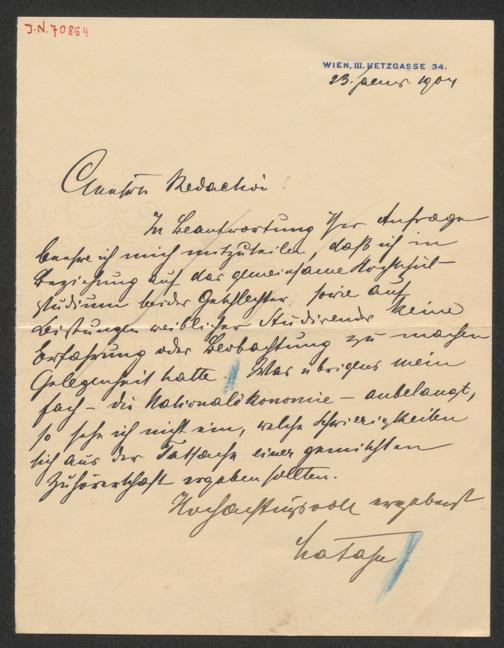 J.N. 70854
WIEN, III. HETZGASSE 34.
23. Jänner 1904
Geehrte Redaction!
In Beantwortung Ihrer Anfrage
beehre ich mich mitzuteilen, daß ich in
Beziehung auf das gemeinsame Hochschul-
studium beider Geschlechter, sowie auf
Leistungen weiblicher Studirender keine
Erfahrung oder Beobachtung zu machen
Gelegenheit hatte. Was übrigens mein
Fach – die Nationalökonomie – anbelangt,
so sehe ich nicht ein, welche Schwierigkeiten
sich aus der Tatsache einer gemischten
Zuhörerschaft ergeben sollten.
Hochachtungsvoll ergebenst